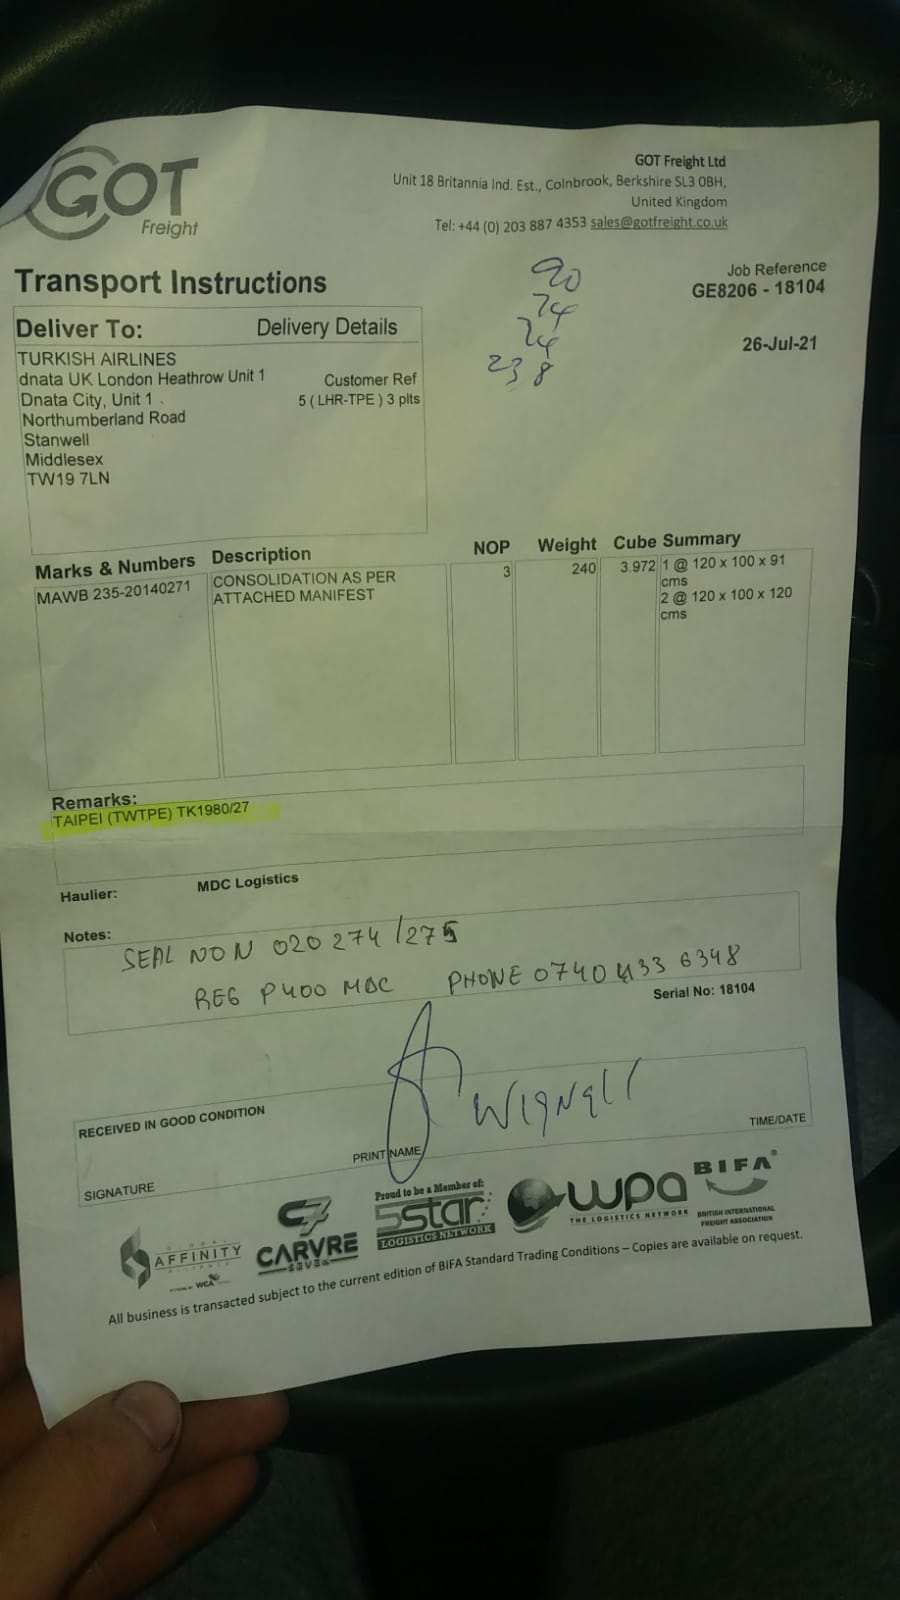 GOT
Freight
GOT Freight Ltd
Unit 18 Britannia Ind. Est., Colnbrook, Berkshire SL3 0BH,
United Kingdom
Tel: +44 (0) 203 887 4353 sales@gotfreight.co.uk
Transport Instructions
Job Reference
GE8206 - 18104
26-Jul-21
90
74
74
238
Deliver To: Delivery Details
TURKISH AIRLINES
dnata UK London Heathrow Unit 1
Customer Ref
Dnata City, Unit 1 .
5 ( LHR-TPE ) 3 plts
Northumberland Road
Stanwell
Middlesex
TW19 7LN
Marks & Numbers Description NOP Weight Cube Summary
MAWB 235-20140271 CONSOLIDATION AS PER 3 240 3.972 1 @ 120 x 100 x 91
ATTACHED MANIFEST cms
2 @ 120 x 100 x 120
cms
Remarks:
TAIPEI (TWTPE) TK1980/27
Haulier: MDC Logistics
Notes:
SEAL NO N 020274/275
REG P400 MDC PHONE 0740 433 6348
Serial No: 18104
RECEIVED IN GOOD CONDITION
SIGNATURE
PRINT NAME
TIME/DATE
GLOBAL
AFFINITY
ALLIANCE
WCA
CARVRE
SEVEN
Proud to be a Member of:
5star
LOGISTICS NETWORK
wpa
THE LOGISTICS NETWORK
BIFA
BRITISH INTERNATIONAL
FREIGHT ASSOCIATION
All business is transacted subject to the current edition of BIFA Standard Trading Conditions – Copies are available on request.